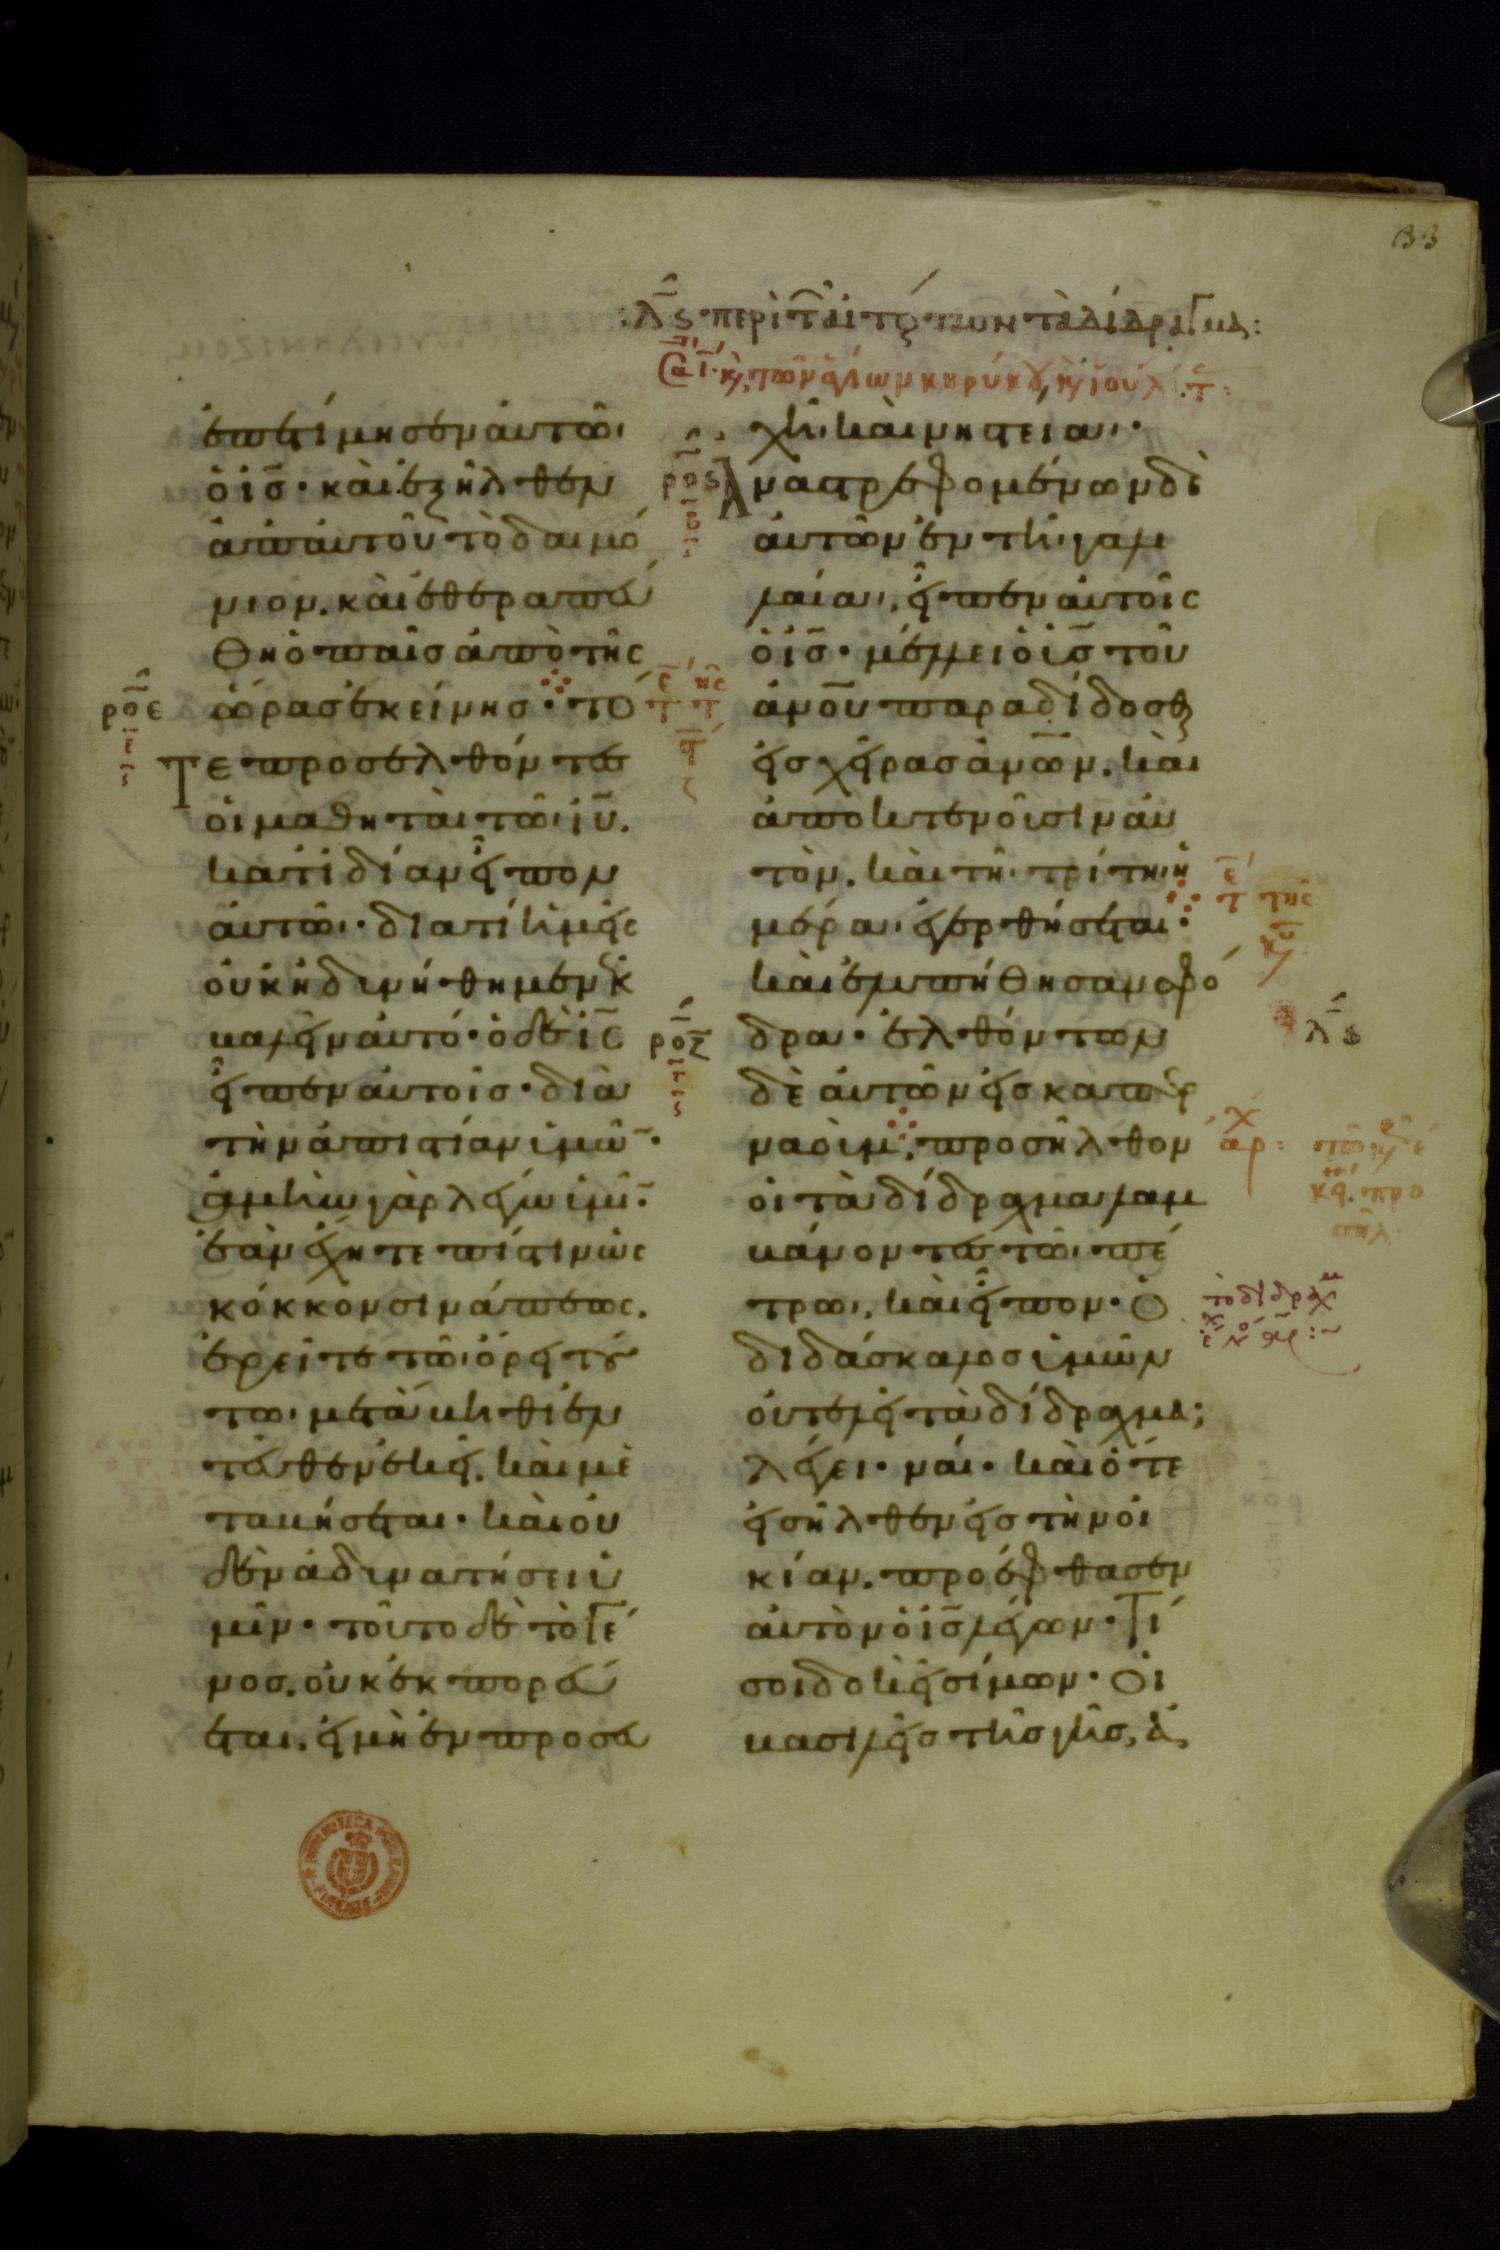 133
λς περὶ τῶν αἰτούντων τὰ δίδραγμα:
ἐπετίμησεν αὐτῶ
ὁ ις̅· καὶ ἐξῆλθεν
ἀπ' αὐτοῦ τὸ δαιμό
νιον. καὶ ἐθεραπεύ
θη ὁ παῖς ἀπὸ τῆς
ὥρας ἐκείνης· τό
ροε
τε προσελθόντες
οἱ μαθηταὶ τῶ ιυ̅.
κατ' ιδίαν εἶπον
αὐτῶ· διατί ἡμεῖς
οὐκ ἠδυνήθημεν ἐκ
βαλεῖν αὐτό· ὁ δὲ ις̅
εἶπεν αὐτοῖς· διὰ
τὴν ἀπιστίαν ὑμῶν·
ἀμὴν γὰρ λέγω ὑμῖν·
ἐὰν ἔχητε πίστιν ὡς
κόκκον σινάπεως.
ἐρεῖτε τῶ ὄρει τού
τω· μετάβηθι ἐν
τεῦθεν ἐκεῖ. καὶ με
ταβήσεται· καὶ οὐ
δὲν ἀδυνατήσει ὑ
μῖν· τοῦτο δὲ τὸ γέ
νος. οὐκ ἐκπορεύ
εται. εἰ μὴ ἐν προσευ
χῆ καὶ νηστεία·
ρος
Ἀναστρεφομένων δὲ
αὐτῶν ἐν τῆ γαλι
λαία, εἶπεν αὐτοῖς
ὁ ις̅· μέλλει ὁ υς̅ τοῦ
ἀνου̅ παραδίδοσθαι
εἰς χεῖρας ἀνων̅. καὶ
ἀποκτενοῦσιν αὐ
τὸν. καὶ τῆ τρίτη ἡ
μέρα ἐγερθήσεται·
καὶ ἐλυπήθησαν σφό
ροζ
δρα· ἐλθόντων
λς
δὲ αὐτῶν εἰς καπερ
ναούμ, προσῆλθον
οἱ τὰ δίδραχμα λαμ
βάνοντες τῶ πέ
τρω, καὶ εἶπον· Ὁ
διδάσκαλος ὑμῶν
οὐ τελεῖ τὰ δίδραχμα;
λέγει· ναί· καὶ ὅτε
εἰσῆλθεν εἰς τὴν οἰ
κίαν. προέφθασεν
αὐτὸν ὁ ις̅ λέγων· Τί
σοι δοκεῖ σίμων· Οἱ
βασιλεῖς τῆς γῆς, ἀ